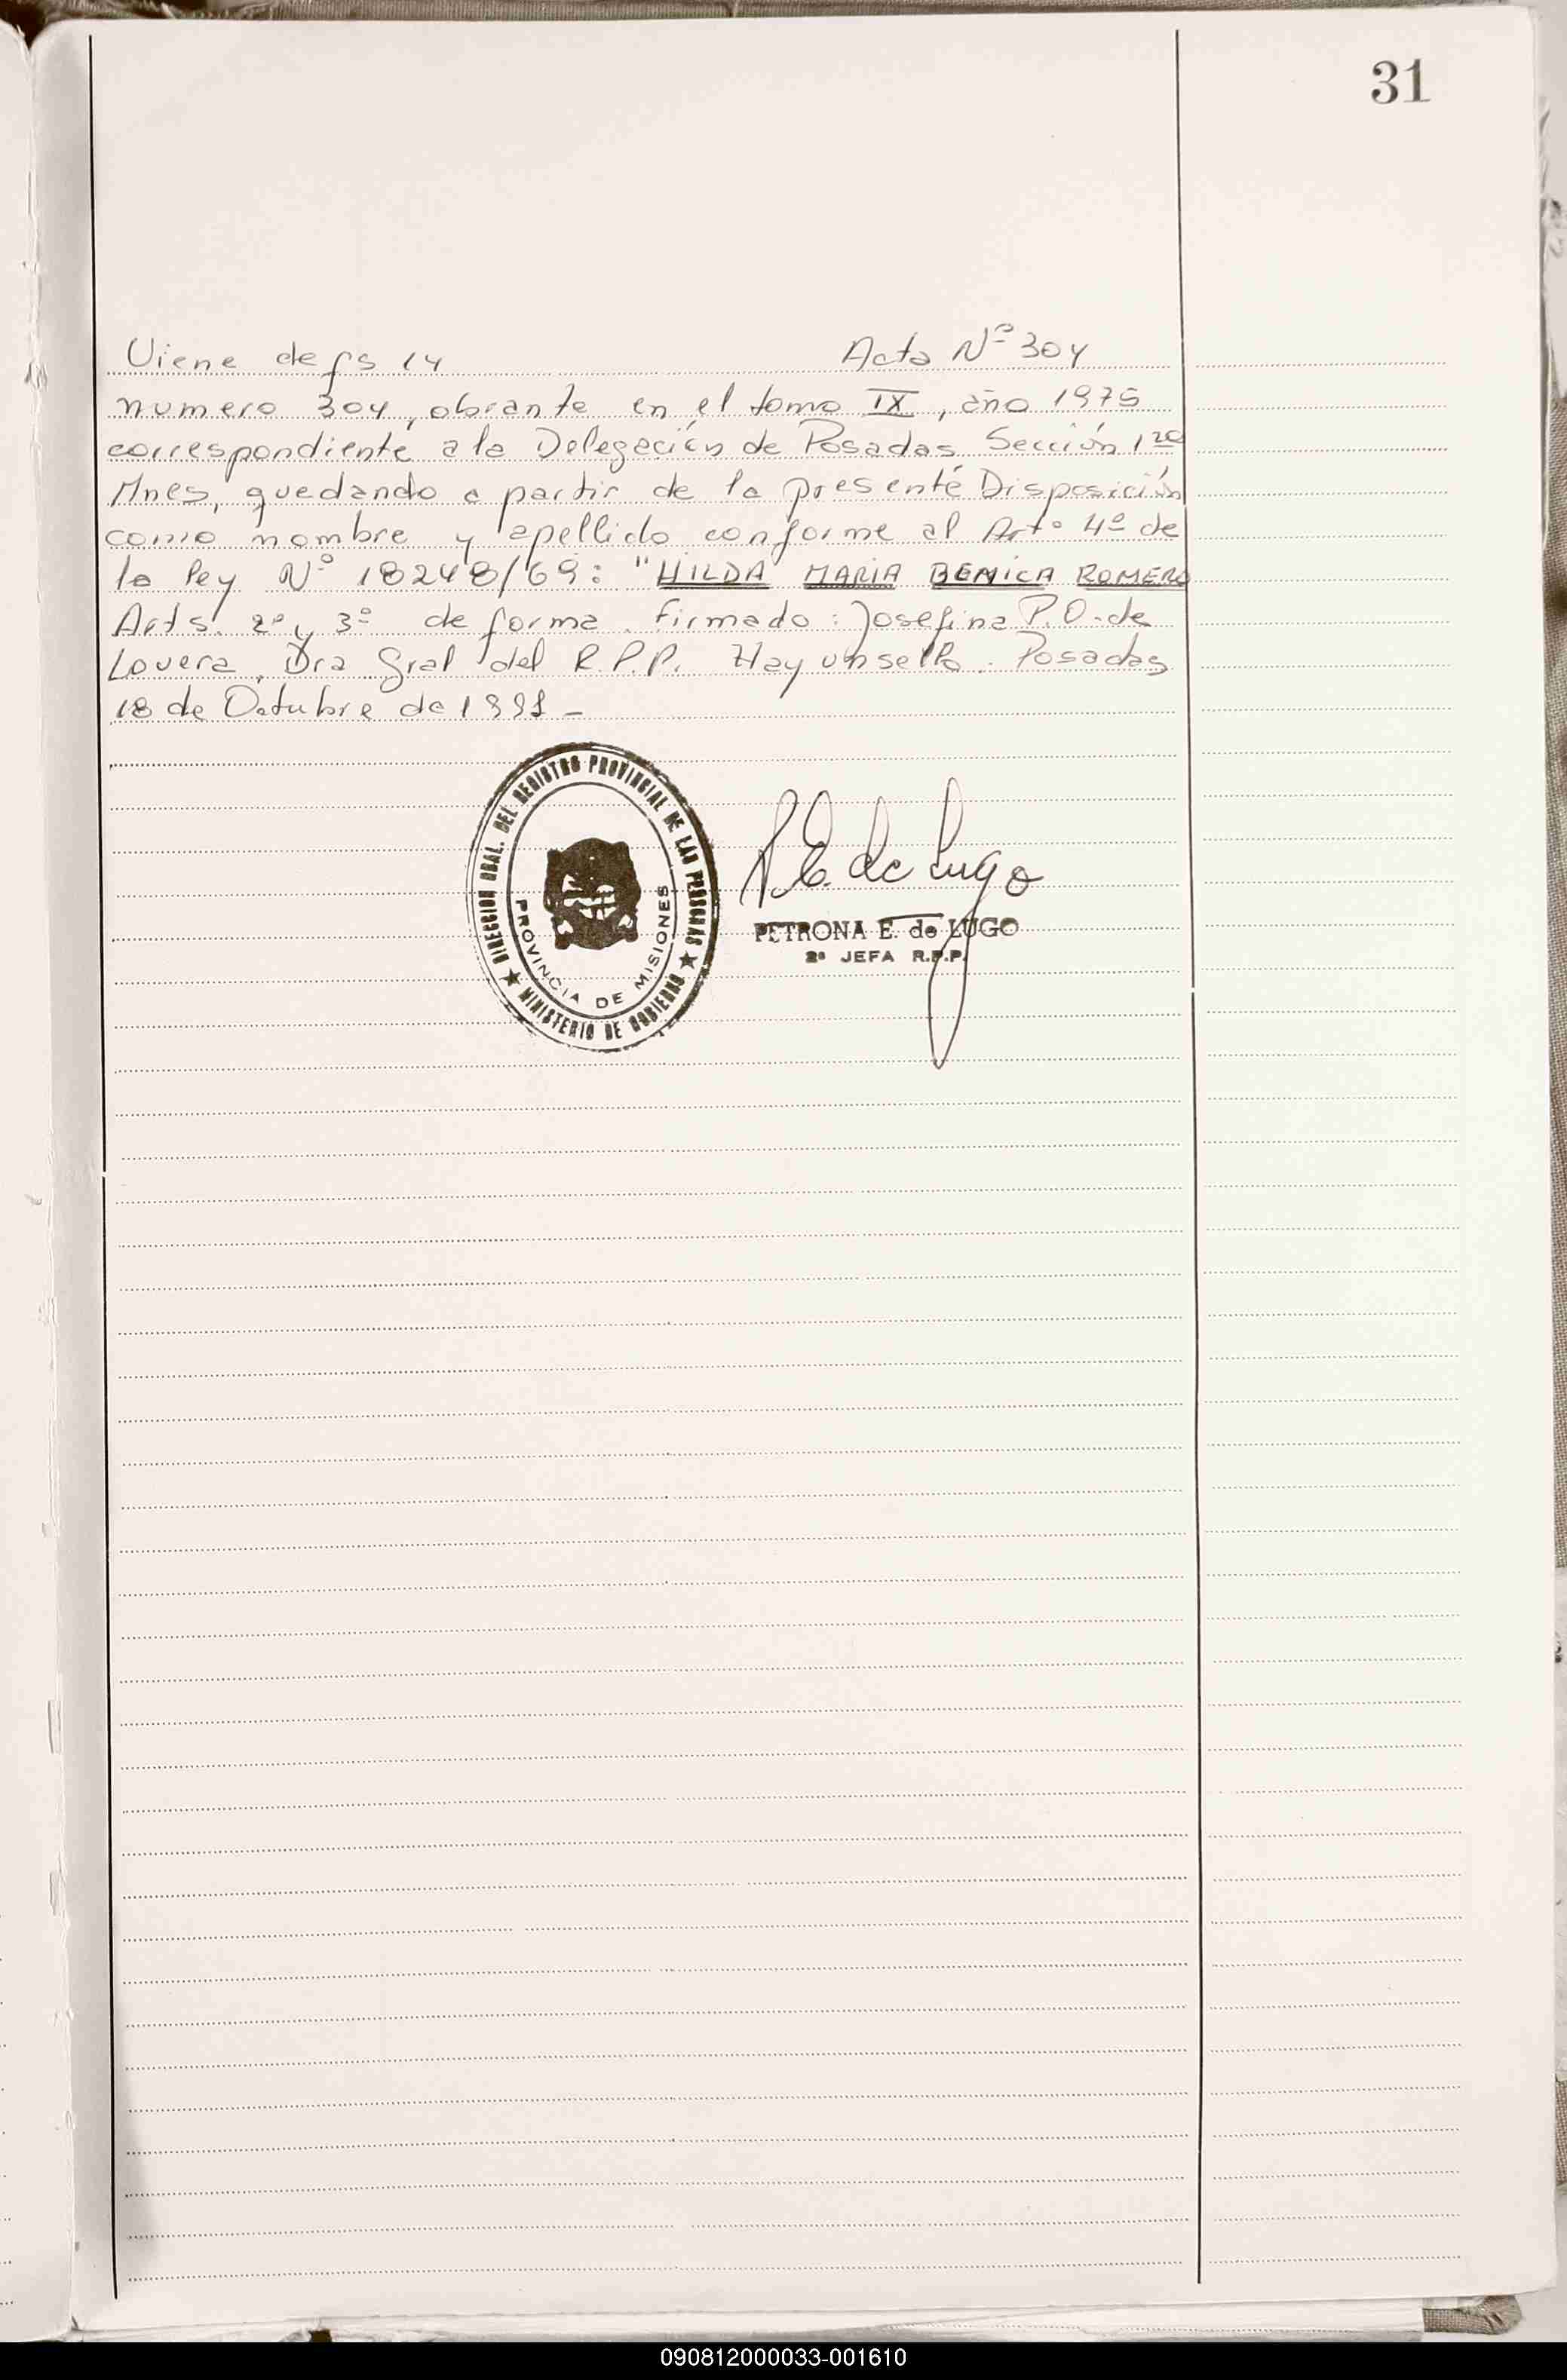 31
Viene de fs 14 Acta Nº 304
numero 304, obrante en el tomo IX, año 1975
correspondiente a la Delegación de Posadas Sección 1ra
Mnes, quedando a partir de la presente Disposición
como nombre y apellido conforme al Artº 4º de
la ley Nº 18248/69: "HILDA MARIA BEMICA ROMERO
Arts. 2º y 3º de forma. Firmado: Josefina P.O. de
Lovera. Dra Gral del R.P.P. Hay un sello. Posadas
18 de Octubre de 1991 -
DIRECCION GRAL. DEL REGISTRO PROVINCIAL DE LAS PERSONAS
PROVINCIA DE MISIONES
★ MINISTERIO DE GOBIERNO ★
P.E. de Lugo
PETRONA E. de LUGO
2ª JEFA R.P.P.
090812000033-001610